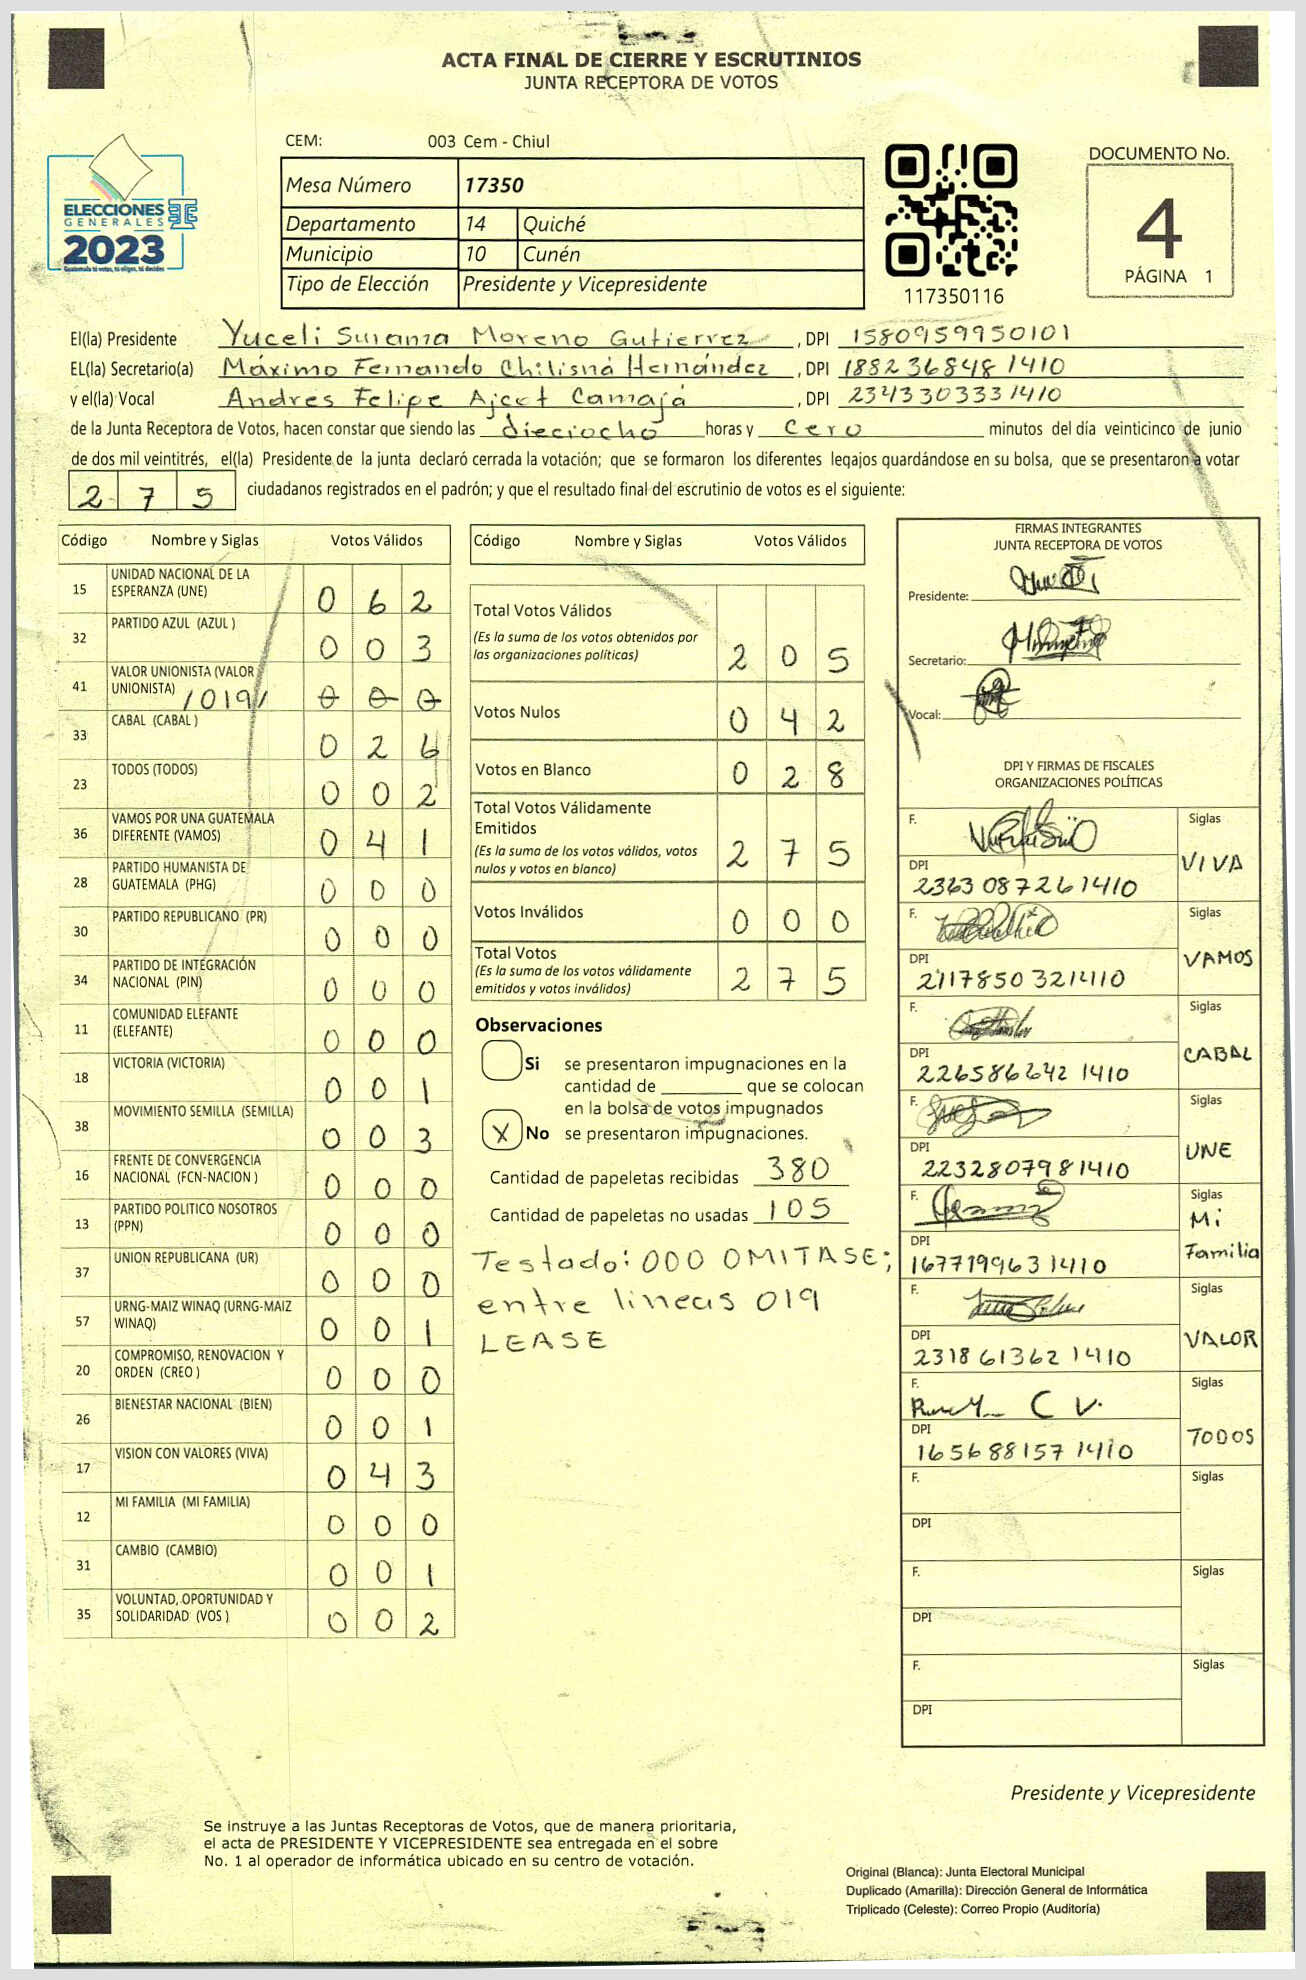 ACTA FINAL DE CIERRE Y ESCRUTINIOS
JUNTA RECEPTORA DE VOTOS
ELECCIONES
GENERALES
2023
Guatemala tú votas, tú eliges, tú decides
CEM: 003 Cem - Chiul
Mesa Número 17350
Departamento 14 Quiché
Municipio 10 Cunén
Tipo de Elección Presidente y Vicepresidente
117350116
DOCUMENTO No.
4
PÁGINA 1
El(la) Presidente Yuceli Moreno Gutierrez, DPI 1580959950101
EL(la) Secretario(a) Máximo Fernando Hernández, DPI 1882368481410
y el(la) Vocal Andres Felipe Ajcot Camajá, DPI 2343303331410
de la Junta Receptora de Votos, hacen constar que siendo las dieciocho horas y cero minutos del día veinticinco de junio
de dos mil veintitrés, el(la) Presidente de la junta declaró cerrada la votación; que se formaron los diferentes legajos guardándose en su bolsa, que se presentaron a votar
275 ciudadanos registrados en el padrón; y que el resultado final del escrutinio de votos es el siguiente:
Código Nombre y Siglas Votos Válidos
15 UNIDAD NACIONAL DE LA ESPERANZA (UNE) 0 6 2
32 PARTIDO AZUL (AZUL ) 0 0 3
41 VALOR UNIONISTA (VALOR UNIONISTA) /019/ 0 0 0
33 CABAL (CABAL ) 0 2 6
23 TODOS (TODOS) 0 0 2
36 VAMOS POR UNA GUATEMALA DIFERENTE (VAMOS) 0 4 1
28 PARTIDO HUMANISTA DE GUATEMALA (PHG) 0 0 0
30 PARTIDO REPUBLICANO (PR) 0 0 0
34 PARTIDO DE INTEGRACIÓN NACIONAL (PIN) 0 0 0
11 COMUNIDAD ELEFANTE (ELEFANTE) 0 0 0
18 VICTORIA (VICTORIA) 0 0 1
38 MOVIMIENTO SEMILLA (SEMILLA) 0 0 3
16 FRENTE DE CONVERGENCIA NACIONAL (FCN-NACION ) 0 0 0
13 PARTIDO POLITICO NOSOTROS (PPN) 0 0 0
37 UNION REPUBLICANA (UR) 0 0 0
57 URNG-MAIZ WINAQ (URNG-MAIZ WINAQ) 0 0 1
20 COMPROMISO, RENOVACION Y ORDEN (CREO ) 0 0 0
26 BIENESTAR NACIONAL (BIEN) 0 0 1
17 VISION CON VALORES (VIVA) 0 4 3
12 MI FAMILIA (MI FAMILIA) 0 0 0
31 CAMBIO (CAMBIO) 0 0 1
35 VOLUNTAD, OPORTUNIDAD Y SOLIDARIDAD (VOS ) 0 0 2
Código Nombre y Siglas Votos Válidos
Total Votos Válidos
(Es la suma de los votos obtenidos por
las organizaciones políticas) 2 0 5
Votos Nulos 0 4 2
Votos en Blanco 0 2 8
Total Votos Válidamente
Emitidos
(Es la suma de los votos válidos, votos
nulos y votos en blanco) 2 7 5
Votos Inválidos 0 0 0
Total Votos
(Es la suma de los votos válidamente
emitidos y votos inválidos) 2 7 5
Observaciones
Si se presentaron impugnaciones en la
cantidad de ________ que se colocan
en la bolsa de votos impugnados
X No se presentaron impugnaciones.
Cantidad de papeletas recibidas 380
Cantidad de papeletas no usadas 105
Testado: 000 OMITASE;
entre lineas 019
LEASE
FIRMAS INTEGRANTES
JUNTA RECEPTORA DE VOTOS
Presidente:
Secretario:
Vocal:
DPI Y FIRMAS DE FISCALES
ORGANIZACIONES POLÍTICAS
F. Siglas
DPI VIVA
2363087261410
F. Siglas
DPI VAMOS
2117850321410
F. Siglas
DPI CABAL
2265866421410
F. Siglas
DPI UNE
2232807981410
F. Siglas
Mi
DPI Familia
1677199631410
F. Siglas
DPI VALOR
2318613621410
F. Siglas
C V.
DPI TODOS
1656881571410
F. Siglas
DPI
F. Siglas
DPI
F. Siglas
DPI
Presidente y Vicepresidente
Se instruye a las Juntas Receptoras de Votos, que de manera prioritaria,
el acta de PRESIDENTE Y VICEPRESIDENTE sea entregada en el sobre
No. 1 al operador de informática ubicado en su centro de votación.
Original (Blanca): Junta Electoral Municipal
Duplicado (Amarilla): Dirección General de Informática
Triplicado (Celeste): Correo Propio (Auditoría)